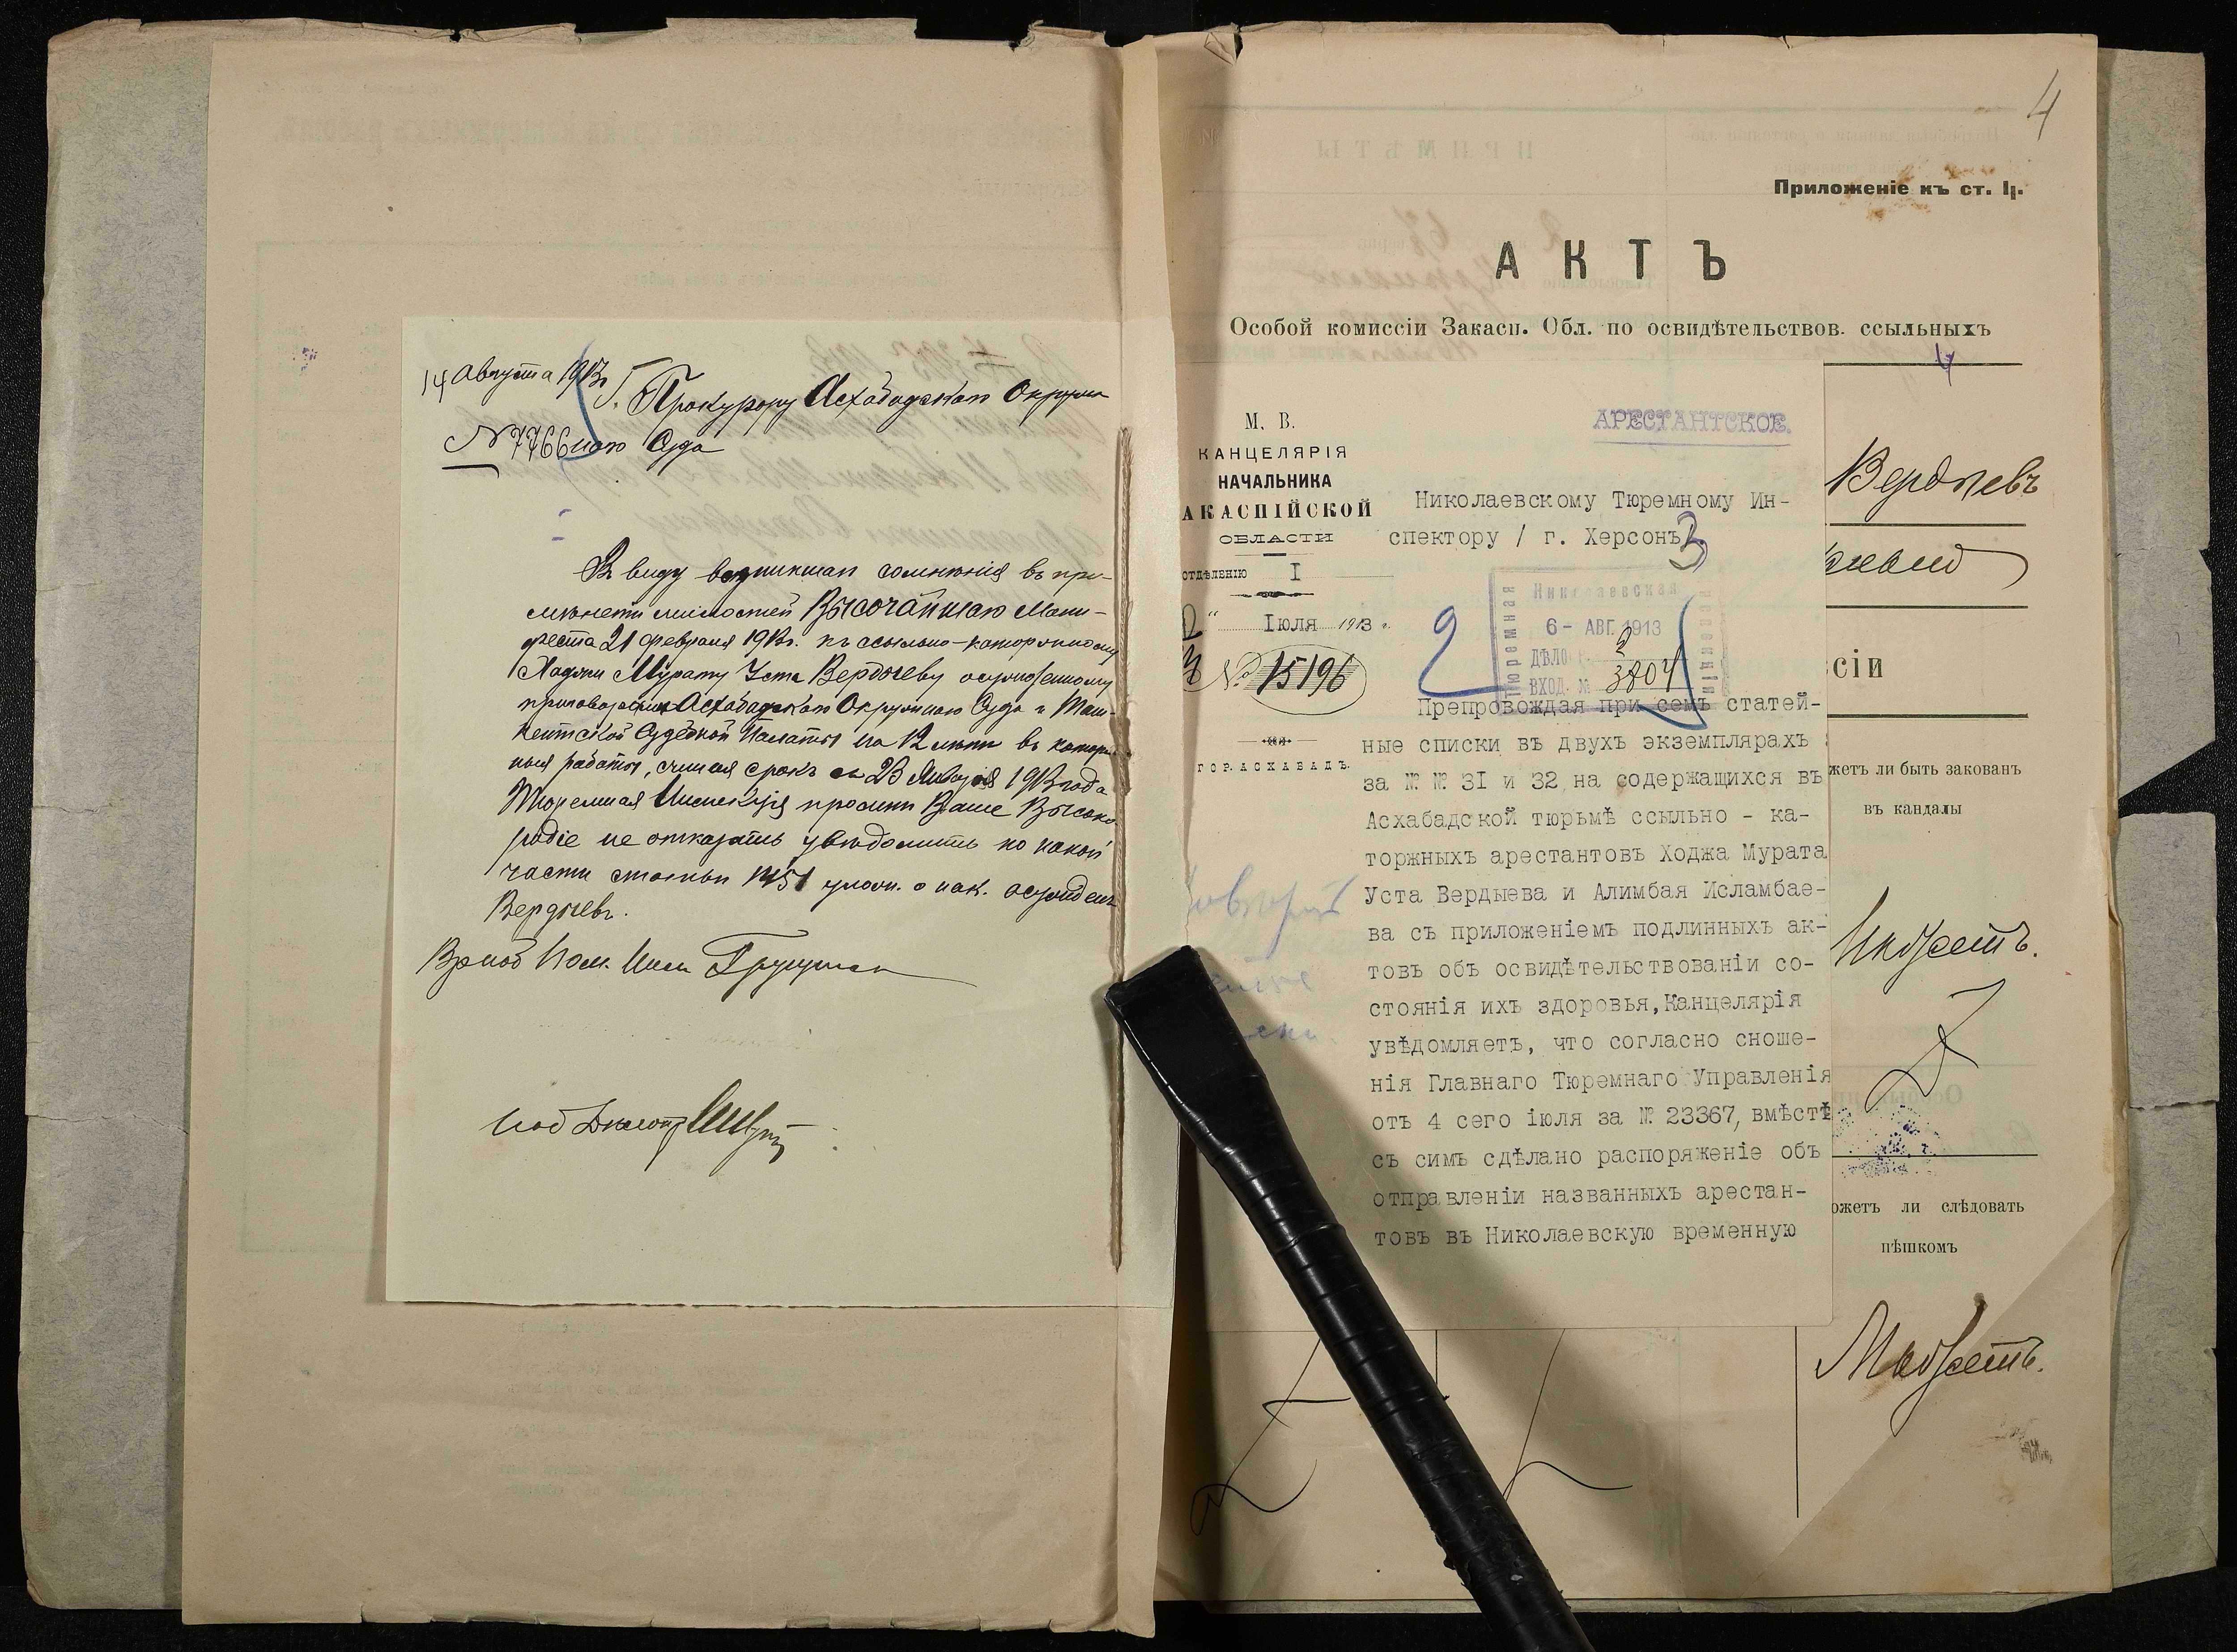 14 Августа 1913г
Г. Прокурору Асхабадскаго Окруж
№ 7766
наго Суда
Въ виду возникшаго сомнѣнія въ при-
мѣненіи милостей Высочайшаго Мани-
феста 21 февраля 1913г. къ ссыльно-каторжному
Ходжи Мурату Уста Вердыеву осужденному
приговорами Асхабадскаго Окружнаго Суда и Таш-
кентской Судебной Палаты на 12 лѣтъ въ каторж
ныя работы, считая срокъ съ 23 Января 1913 года
Тюремная Инспекція проситъ Ваше Высоко
родіе не отказать увѣдомить по какой
части статьи 1451 улож. о нак. осужденъ
Вердыевъ.
Пом. Инсп.
4
Приложеніе къ ст. 4.
АКТЪ
Особой комиссіи Закасп. Обл. по освидѣтельствов. ссыльныхъ
М. В.
КАНЦЕЛЯРІЯ
НАЧАЛЬНИКА
АКАСПІЙСКОЙ
ОБЛАСТИ
ОТДѢЛЕНІЮ I
Іюля 1913 г.
№ 15196
ГОР. АСХАБАДЪ.
АРЕСТАНТСКОЕ.
Николаевскому Тюремному Ин-
спектору / г. Херсонъ
2
Николаевская
Тюремная
6 - АВГ. 1913
ДѢЛО
ВХОД. № 3804
Препровождая при семъ статей-
ные списки въ двухъ экземплярахъ
за № № 31 и 32 на содержащихся въ
Асхабадской тюрьмѣ ссыльно - ка-
торжныхъ арестантовъ Ходжа Мурата
Уста Вердыева и Алимбая Исламбае-
ва съ приложеніемъ подлинныхъ ак-
товъ объ освидѣтельствованіи со-
стоянія ихъ здоровья, Канцелярія
увѣдомляетъ, что согласно сноше-
нія Главнаго Тюремнаго Управленія
отъ 4 сего іюля за № 23367, вмѣстѣ
съ симъ сдѣлано распоряженіе объ
отправленіи названныхъ арестан-
товъ въ Николаевскую временную
Вердыевъ
сіи
жетъ ли быть закованъ
въ кандалы
Можетъ.
ожетъ ли слѣдовать
пѣшкомъ
Можетъ.